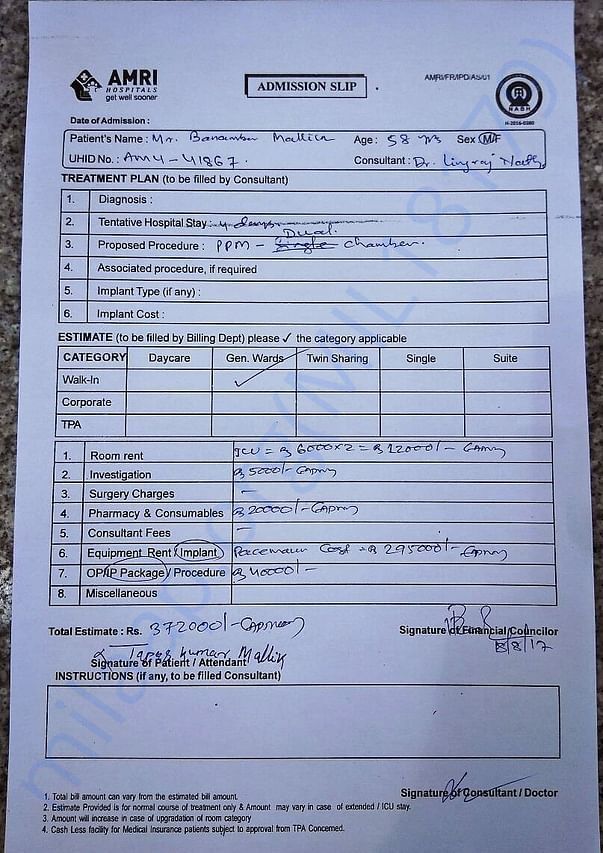 AMRI
HOSPITALS
get well sooner
ADMISSION SLIP
AMRI/FR/IPD/AS/01
NABH
H-2016-0380
Date of Admission :
Patient's Name : Mr. Banamber Mallick Age : 58 yrs Sex M/F
UHID No. : AM4-41867. Consultant : Dr. Lingraj Nath
TREATMENT PLAN (to be filled by Consultant)
1. Diagnosis :
2. Tentative Hospital Stay : 4 days
3. Proposed Procedure : PPM - Single Dual chamber.
4. Associated procedure, if required
5. Implant Type (if any) :
6. Implant Cost :
ESTIMATE (to be filled by Billing Dept) please ✓ the category applicable
CATEGORY Daycare Gen. Wards Twin Sharing Single Suite
Walk-In ✓
Corporate
TPA
1. Room rent ICU = Rs 6000x2 = Rs 12000/-
2. Investigation Rs 5000/-
3. Surgery Charges -
4. Pharmacy & Consumables Rs 20000/-
5. Consultant Fees -
6. Equipment Rent / Implant Pacemaker Cost = Rs 295000/-
7. OP/IP Package / Procedure Rs 40000/-
8. Miscellaneous
Total Estimate : Rs. 372000/-
Signature of Financial Councilor
8/8/17
Tapas Kumar Mallik
Signature of Patient / Attendant
INSTRUCTIONS (if any, to be filled Consultant)
Signature of Consultant / Doctor
1. Total bill amount can vary from the estimated bill amount.
2. Estimate Provided is for normal course of treatment only & Amount may vary in case of extended / ICU stay.
3. Amount will increase in case of upgradation of room category
4. Cash Less facility for Medical Insurance patients subject to approval from TPA Concerned.